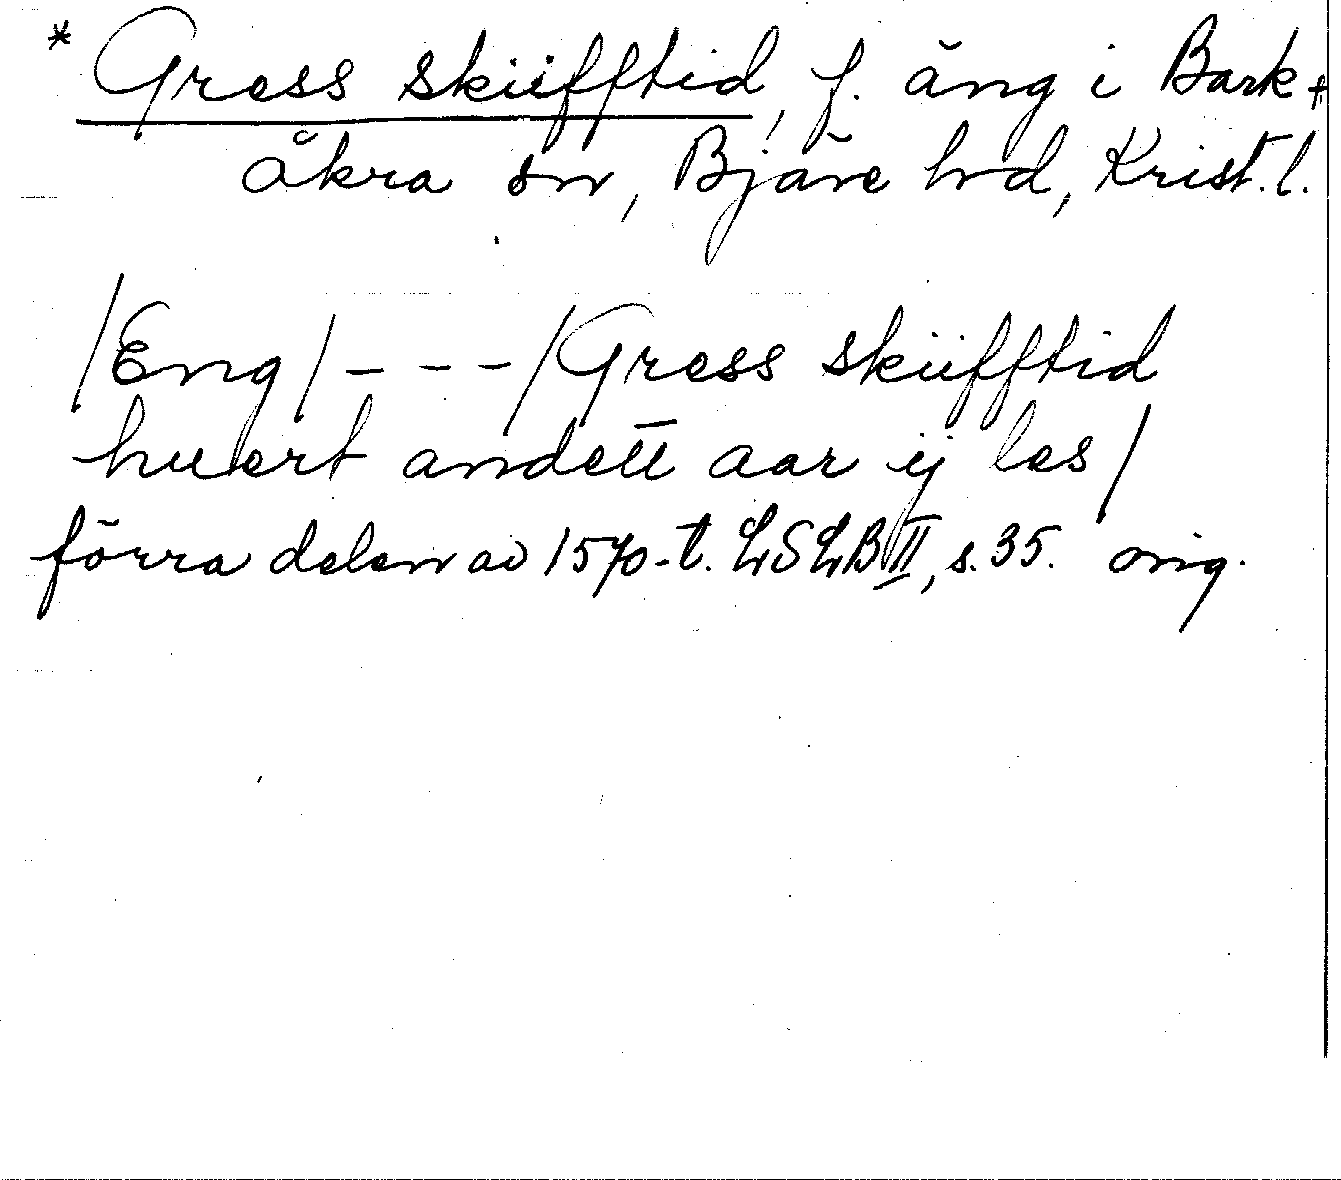 * Gress skiifftid, f. äng i Bark+
åkra sn, Bjäre hrd, Krist. l.
/Eng/ – – – /Gress skiifftid
huert andett aar ij les/
förra delen av 1570-t. LSLB II, s. 35. orig.